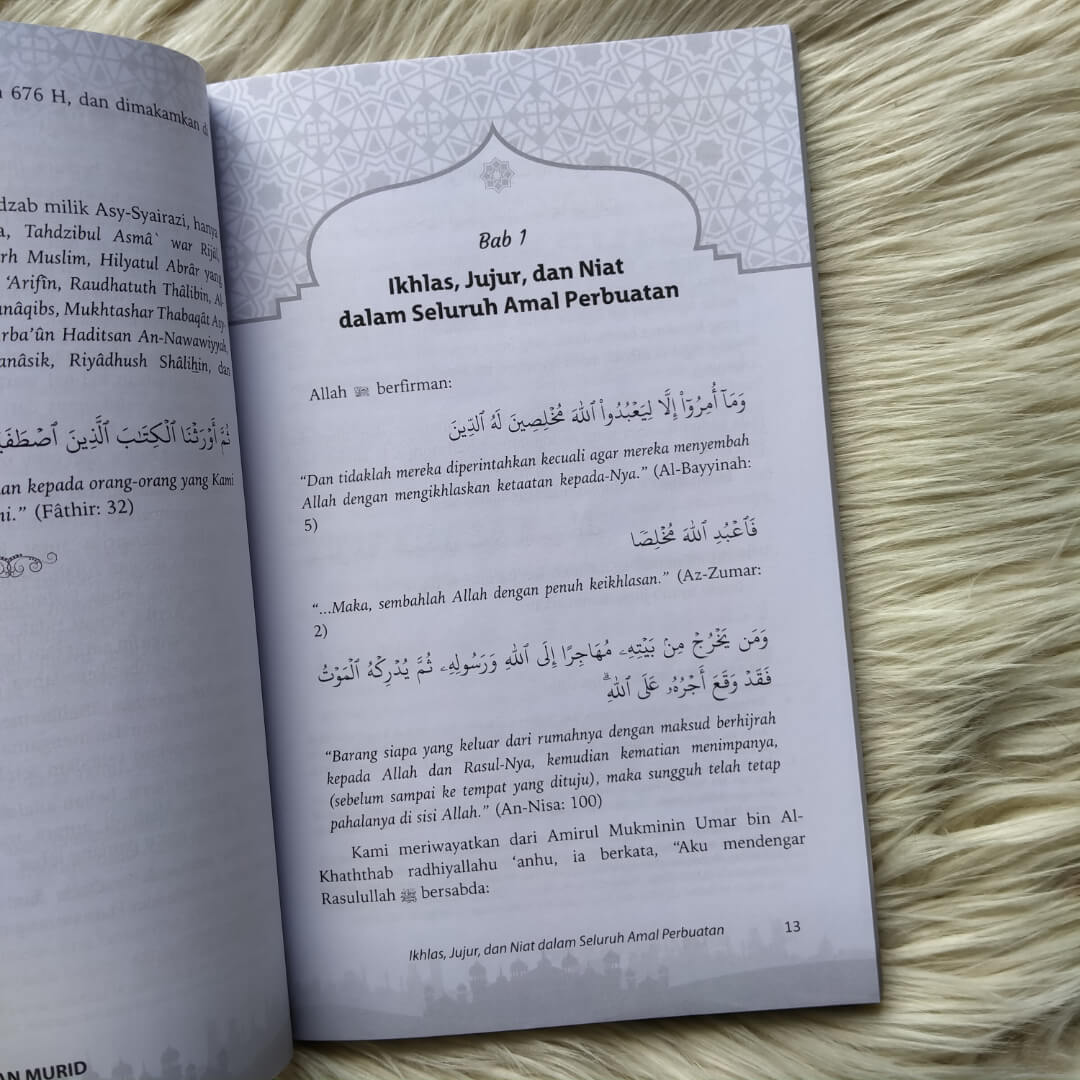 676 H, dan dimakamkan di
dzab milik Asy-Syairazi, hanya
Tahdzibul Asmâ` war Rijâl,
rh Muslim, Hilyatul Abrâr yang
‘Arifîn, Raudhatuth Thâlibîn, Al-
nâqibs, Mukhtashar Thabaqât Asy-
rba’ûn Haditsan An-Nawawiyyah,
anâsik, Riyâdhush Shâlihîn, dan
ثُمَّ أَوْرَثْنَا ٱلْكِتَٰبَ ٱلَّذِينَ ٱصْطَفَيْ
an kepada orang-orang yang Kami
ni.” (Fâthir: 32)
AN MURID
Bab 1
Ikhlas, Jujur, dan Niat
dalam Seluruh Amal Perbuatan
Allah ﷻ berfirman:
وَمَآ أُمِرُوٓا۟ إِلَّا لِيَعْبُدُوا۟ ٱللَّهَ مُخْلِصِينَ لَهُ ٱلدِّينَ
“Dan tidaklah mereka diperintahkan kecuali agar mereka menyembah
Allah dengan mengikhlaskan ketaatan kepada-Nya.” (Al-Bayyinah:
5)
فَٱعْبُدِ ٱللَّهَ مُخْلِصًا
“...Maka, sembahlah Allah dengan penuh keikhlasan.” (Az-Zumar:
2)
وَمَن يَخْرُجْ مِنۢ بَيْتِهِۦ مُهَاجِرًا إِلَى ٱللَّهِ وَرَسُولِهِۦ ثُمَّ يُدْرِكْهُ ٱلْمَوْتُ
فَقَدْ وَقَعَ أَجْرُهُۥ عَلَى ٱللَّهِ ۗ
“Barang siapa yang keluar dari rumahnya dengan maksud berhijrah
kepada Allah dan Rasul-Nya, kemudian kematian menimpanya,
(sebelum sampai ke tempat yang dituju), maka sungguh telah tetap
pahalanya di sisi Allah.” (An-Nisa: 100)
Kami meriwayatkan dari Amirul Mukminin Umar bin Al-
Khaththab radhiyallahu ‘anhu, ia berkata, “Aku mendengar
Rasulullah ﷺ bersabda:
Ikhlas, Jujur, dan Niat dalam Seluruh Amal Perbuatan 13